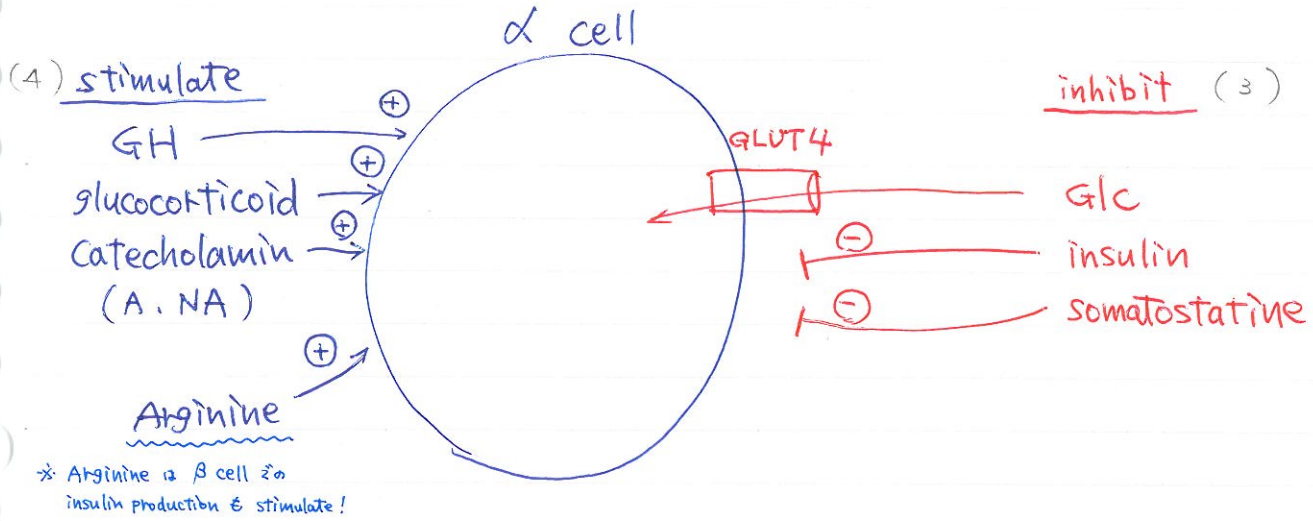 α cell
(4) stimulate
GH
glucocorticoid
Catecholamin
(A. NA)
Arginine
※ Arginine は β cell での
insulin production も stimulate!
⊕
⊕
⊕
⊕
GLUT4
inhibit (3)
Glc
⊖
insulin
⊖
somatostatine